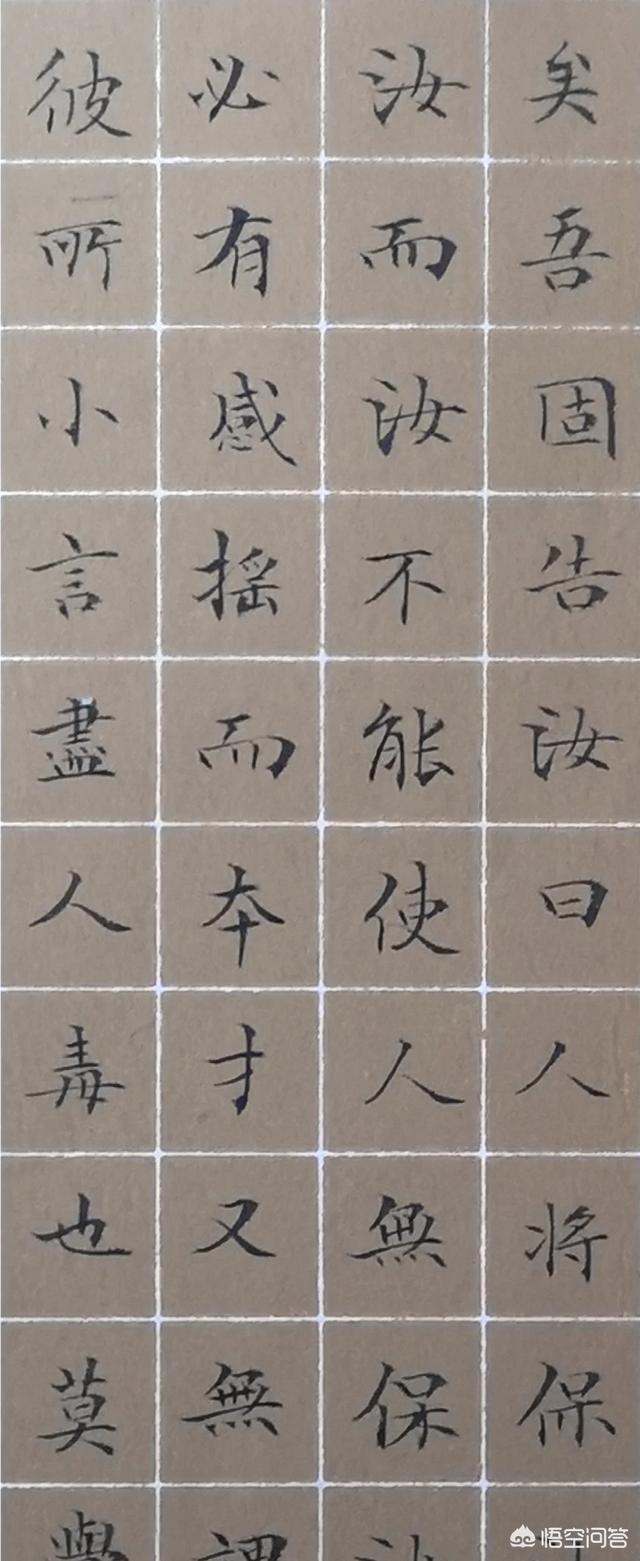 矣吾固告汝曰人将保
汝而汝不能使人無保
必有感摇而本才又無
彼所小言盡人毒也莫
悟空问答